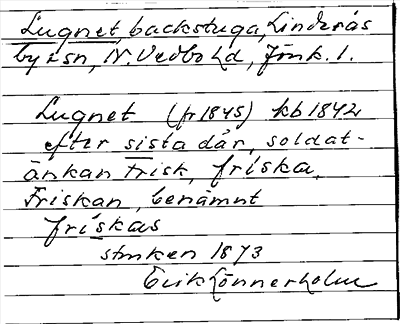 Lugnet, backstuga, Linderås
by i sn, N. Vedbo hd, Jönk. l.
Lugnet (fr 1845) kb 1842
efter sista där, soldat-
änkan Frisk, friska,
Friskan, benämnt
friskas
stmken 1873
Erik Lönnerholm